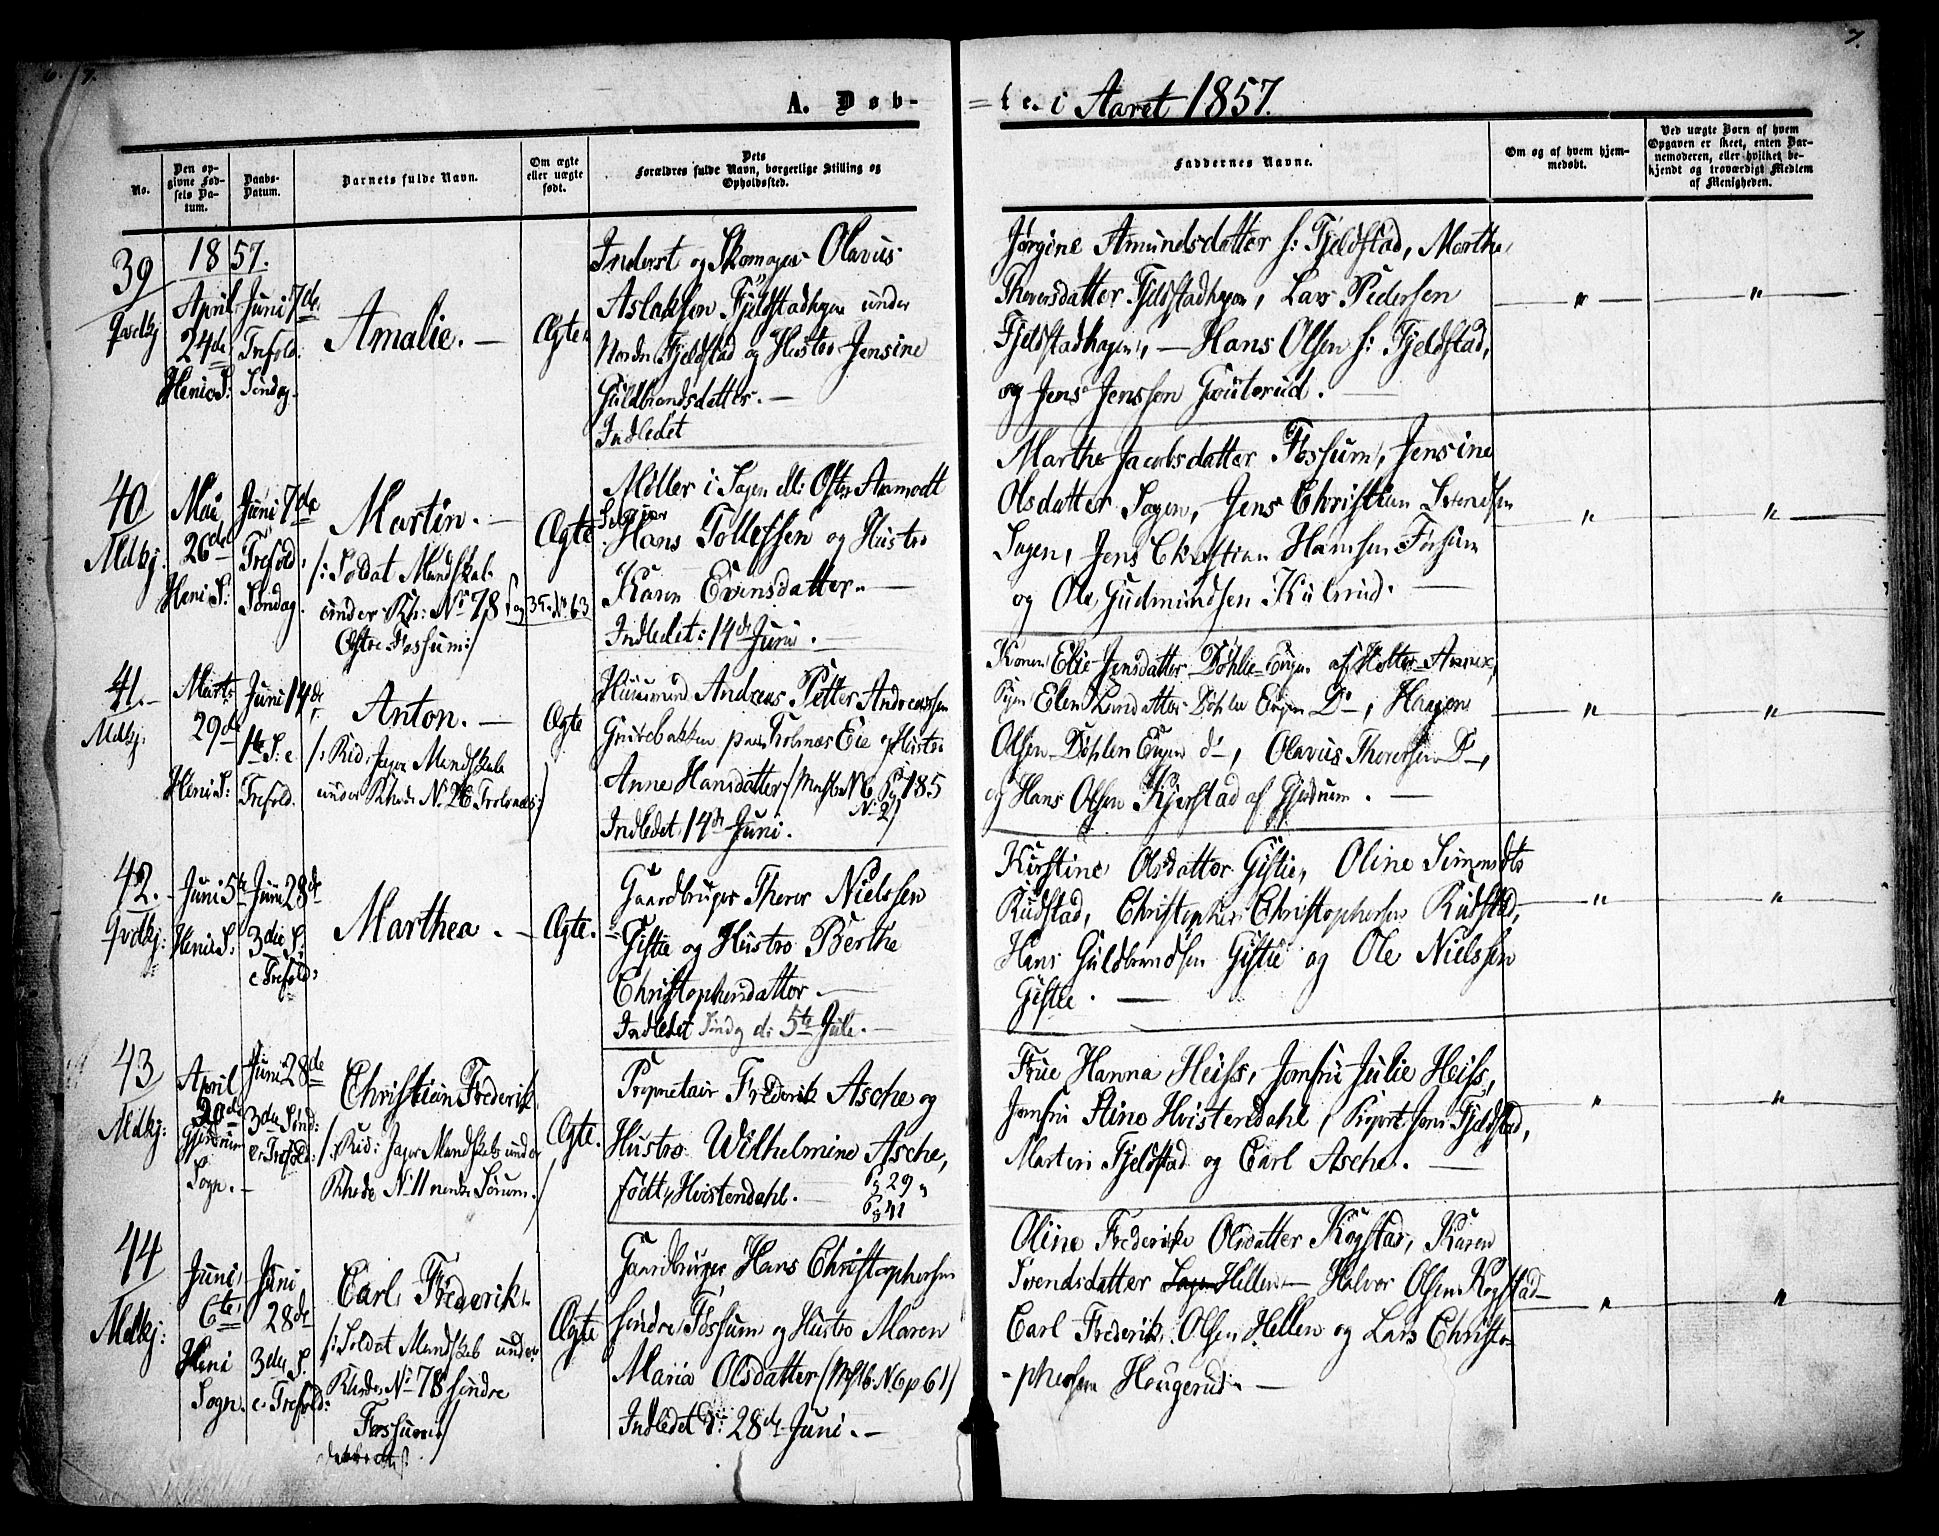 7.
7.
A. Døb-
= te. i Aaret 1857.
No.
Den op-
givne Fød-
sels Da-
tum.
Daabs-
Datum.
Barnets fulde Navn.
Om ægte
eller uægte
født.
Dets
Forældres fulde Navn, borgerlige Stilling og
Opholdssted.
Faddernes Navne.
Om og af hvem hjem-
medøbt.
Ved uægte Børn af hvem
Opgaven er skeet, enten Bar-
nemoderen, eller hvilket be-
kjendt og troværdigt Medlem
af Menigheden.
39
1857.
April
24de
Heni S:
Juni 7de
Trefold:
Søndag.
Amalie. —
Ægte.
Inderst og Skomager Olavus
Aslaksen Fjeldstadhagen under
Nordre Fjeldstad og Hustro Jensine
Guldbrandsdatter. —
Indledet
Jørgine Amundsdatter s: Fjeldstad, Marthe
Thoversdatter Fjeldstadhagen, Lars Pedersen
Fjeldstadhagen, — Hans Olsen s: Fjeldstad,
og Jens Jenssen —
40
Mdkj:
Mai
26de
Heni S:
Juni 7de
Trefold:
Søndag.
Martin. —
/: Soldat Mandskab
under Rh: No 78
Østre Fossum:/
Ægte
Møller i Sagen
Hans Tollefsen og Hustro
Karen Evensdatter. —
Indledet: 14de Juni. —
Marthe Jacobsdatter Fossum, Jensine
Olsdatter Sagen, Jens Christian Svendsen
Sagen, Jens Christian Hansen Fossum
og Ole Gudmundsen Kulsrud. —
41. —
Mdkj.
Marts
29de
Heni S:
Juni 14de
1ste S: e
Trefold.
Anton. —
/: Rid: Jager Mandskab
under Rhode No 26
Ægte
Husmand Andreas Petter Andreassen
og Hustro
Anne Hansdatter
Indledet 14de Juni.
Konen Elie Jensdatter Døhlie Engen af Holter Annex,
Døhlie Engen Do —, Hagen
Olsen Døhlen Engen do —, Olavus Thoresen Do —,
og Hans Olsen Kjerstad af Gjerdrum. —
42. —
Juni 5te
Heni S:
Juni 28de
3die S:
e Trefold:
Marthea. —
Ægte.
Gaardbruger Thorer Nielssen
Gistie og Hustro Berthe
Christophersdatter. —
Indledet Søndag d: 5te Julie. —
Kirstine Olsdatter Gistie, Oline Simensdtr
Rudstad, Christopher Christophersen Rudstad,
Hans Guldbrandsen Gistie og Ole Nielssen
Gistie. —
43
Mdkj:
April
20de
Gjerdrum
Sogn. —
Juni 28de
3die Sønd:
e. Trefold:
Christian Frederik
/: Rid: Jager Mandskab under
Rhode No 11 nordre Sørum:/
Ægte.
Proprietair Frederik Asche og
Hustro Wilhelmine Asche,
født Hvistendahl.
Pg 29
Frue Hanna Heiss, Jomfru Julie Heiss,
Jomfru Stine Hvistendahl,
Morten Fjeldstad og Carl Asche. —
44
Mdkj:
Juni
6te
Heni
Sogn.
Juni
28de
3die S.
e. Trefold:
Carl Frederik.
/: Soldat Mandskab under
Rhode No 78 søndre
Fossum:/
Ægte
Gaardbruger Hans Christophersen
søndre Fossum og Hustro Maren
Maria Olsdatter
Indledet d: 28de Juni. —
Oline Frederike Olsdatter Kogstad, Karen
Svendsdatter Hellen — Halvor Olsen Kogstad —
Carl Frederik Olsen Hellen og Lars Christo-
-phersen Hougerud —